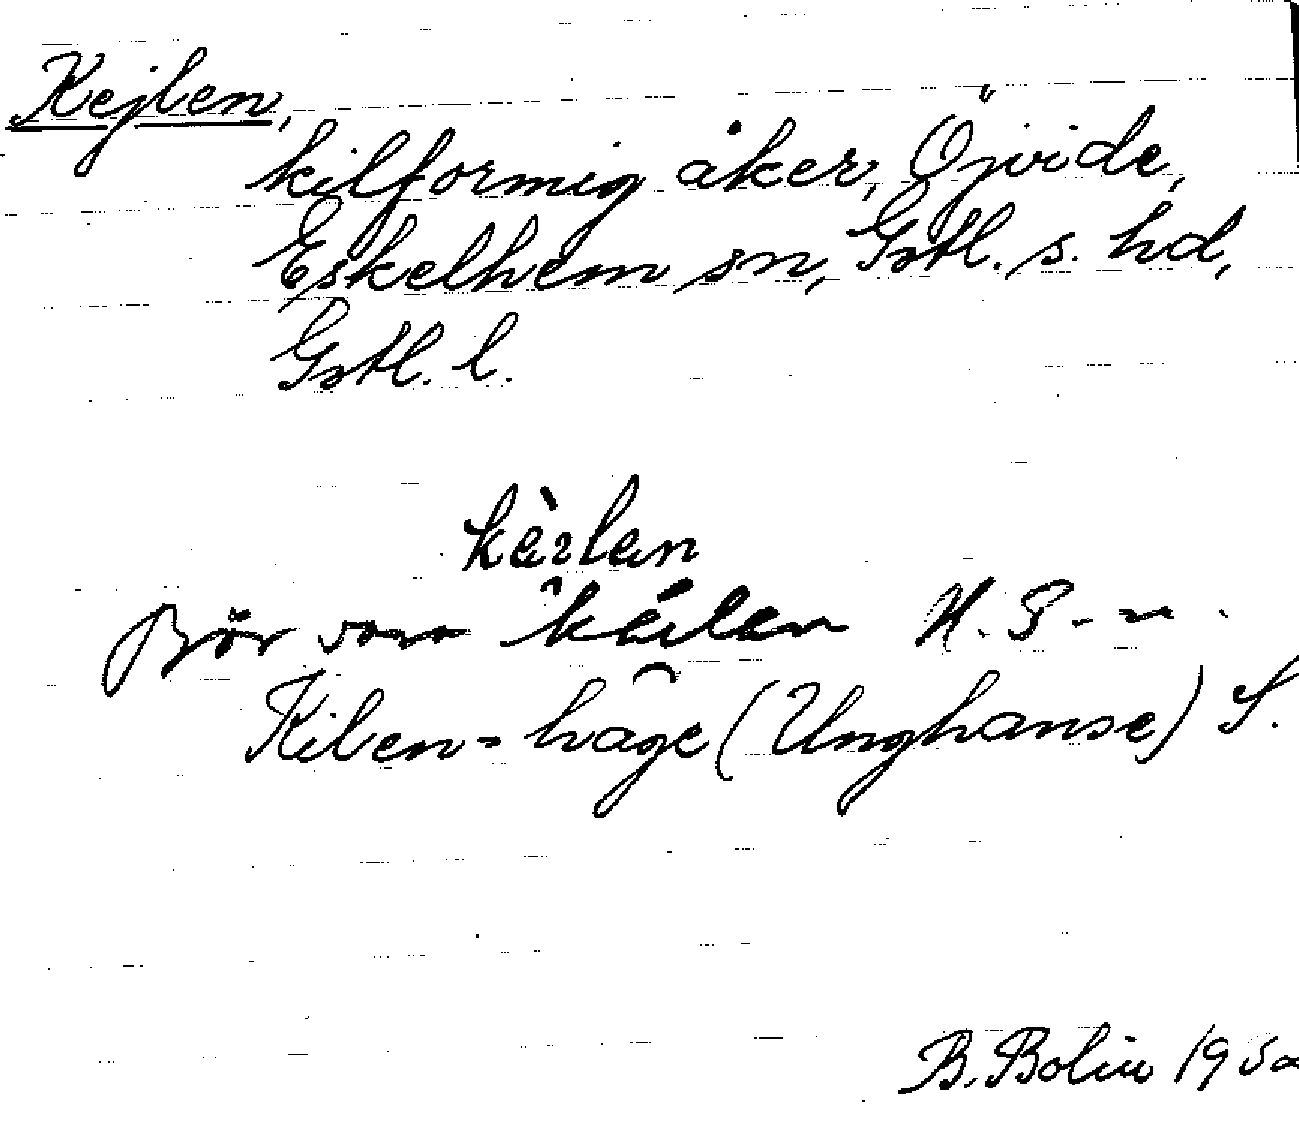 Kejlen,
kilformig åker, Öjvide,
Eskelhem sn, Gotl. s. hd,
Gotl. l.
kèilen
Bör vara kéilen H. G-n.
Kilen-hage (Unghanse) S.
B. Bolin 1950